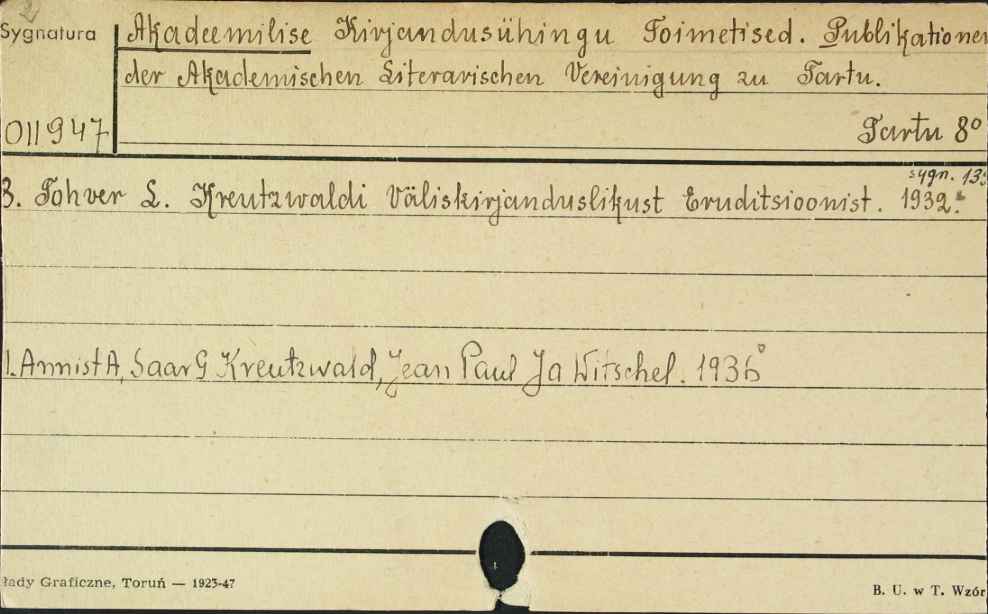 Sygnatura
Akadeemilise Kirjandusühingu Toimetised. Publikationen
der Akademischen Literarischen Vereinigung zu Tartu.
011947
Tartu 8°
sygn. 13
3. Tohver L. Kreutzwaldi Väliskirjanduslikust Eruditsioonist. 1932.
1. Annist A, Saar G Kreutzwald, Jean Paul Ja Witschel. 1936
łady Graficzne, Toruń — 1923-47
B. U. w T. Wzór